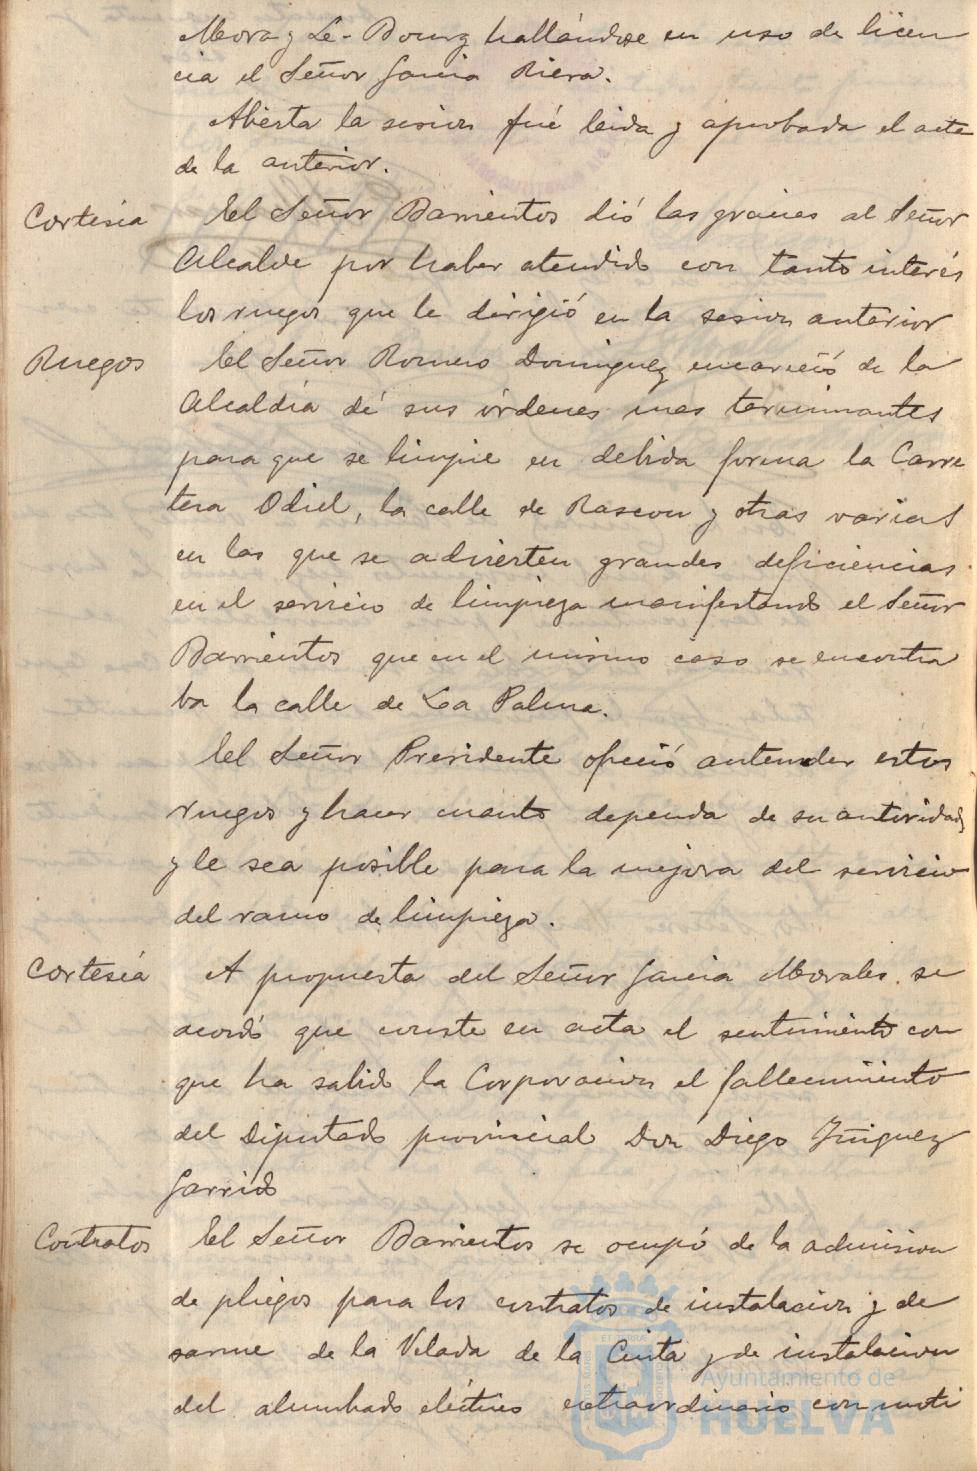 Mora y Le-Bourg hallándose en uso de licen
cia el Señor Garcia Riera.
Abierta la sesion fué leida y aprobada el acta
de la anterior.
Cortesía El Señor Barrientos dió las gracias al Señor
Alcalde por haber atendido con tanto interés
los ruegos que le dirigió en la sesion anterior
Ruegos El Señor Romero Dominguez encareció de la
Alcaldía dé sus órdenes mas terminantes
para que se limpie en debida forma la Carre
tera Odiel, la calle de Rascon y otras varias
en las que se advierten grandes deficiencias
en el servicio de limpieza manifestando el Señor
Barrientos que en el mismo caso se encontra
ba la calle de La Palma.
El Señor Presidente ofreció antender estos
ruegos y hacer cuanto dependa de su autoridad
y le sea posible para la mejora del servicio
del ramo de limpieza.
Cortesía A propuesta del Señor Garcia Morales se
acordó que conste en acta el sentimiento con
que ha sabido la Corporacion el fallecimiento
del Diputado provincial Don Diego Iñiguez
Garrido
Contratos El Señor Barrientos se ocupó de la admision
de pliegos para los contratos de instalacion y de
sarme de la Velada de la Cinta y de instalacion
del alumbrado eléctrico extraordinario con moti
Ayuntamiento de
HUELVA